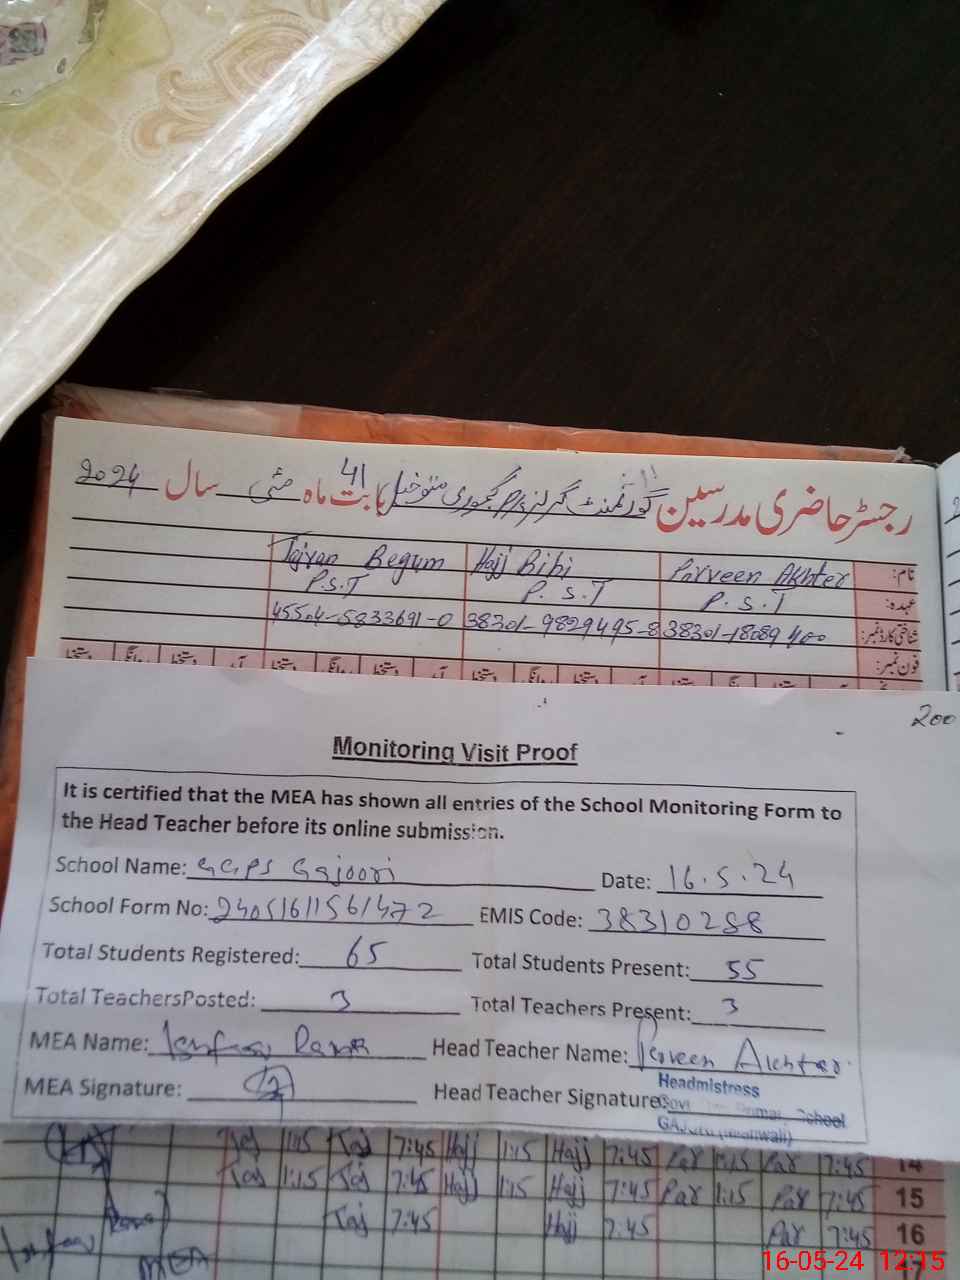 رجسٹر حاضری مدرسین گورنمنٹ گرلز پرائمری بابت ماہ مئی سال 2024
نام: Parveen Akhter Hajj Bibi Tajvan Begum
عہدہ: P.S.T P.S.T P.S.T
شناختی کارڈ نمبر: 38301-18089400 38301-9829495-8 45504-5833691-0
فون نمبر:
200
Monitoring Visit Proof
It is certified that the MEA has shown all entries of the School Monitoring Form to
the Head Teacher before its online submission.
School Name: GGPS Gajoori Date: 16.5.24
School Form No: 24051611561472 EMIS Code: 38310288
Total Students Registered: 65 Total Students Present: 55
Total TeachersPosted: 3 Total Teachers Present: 3
MEA Name: Head Teacher Name: Perveen Akhter
MEA Signature: Head Teacher Signature:
Headmistress
Govt School
Taj 1:15 Taj 7:45 Hajj 1:15 Hajj 7:45 Par 1:15 Par 7:45 14
Taj 1:15 Taj 7:45 Hajj 1:15 Hajj 7:45 Par 1:15 Par 7:45 15
Taj 7:45 Hajj 7:45 Par 7:45 16
MEA
16-05-24 12:15